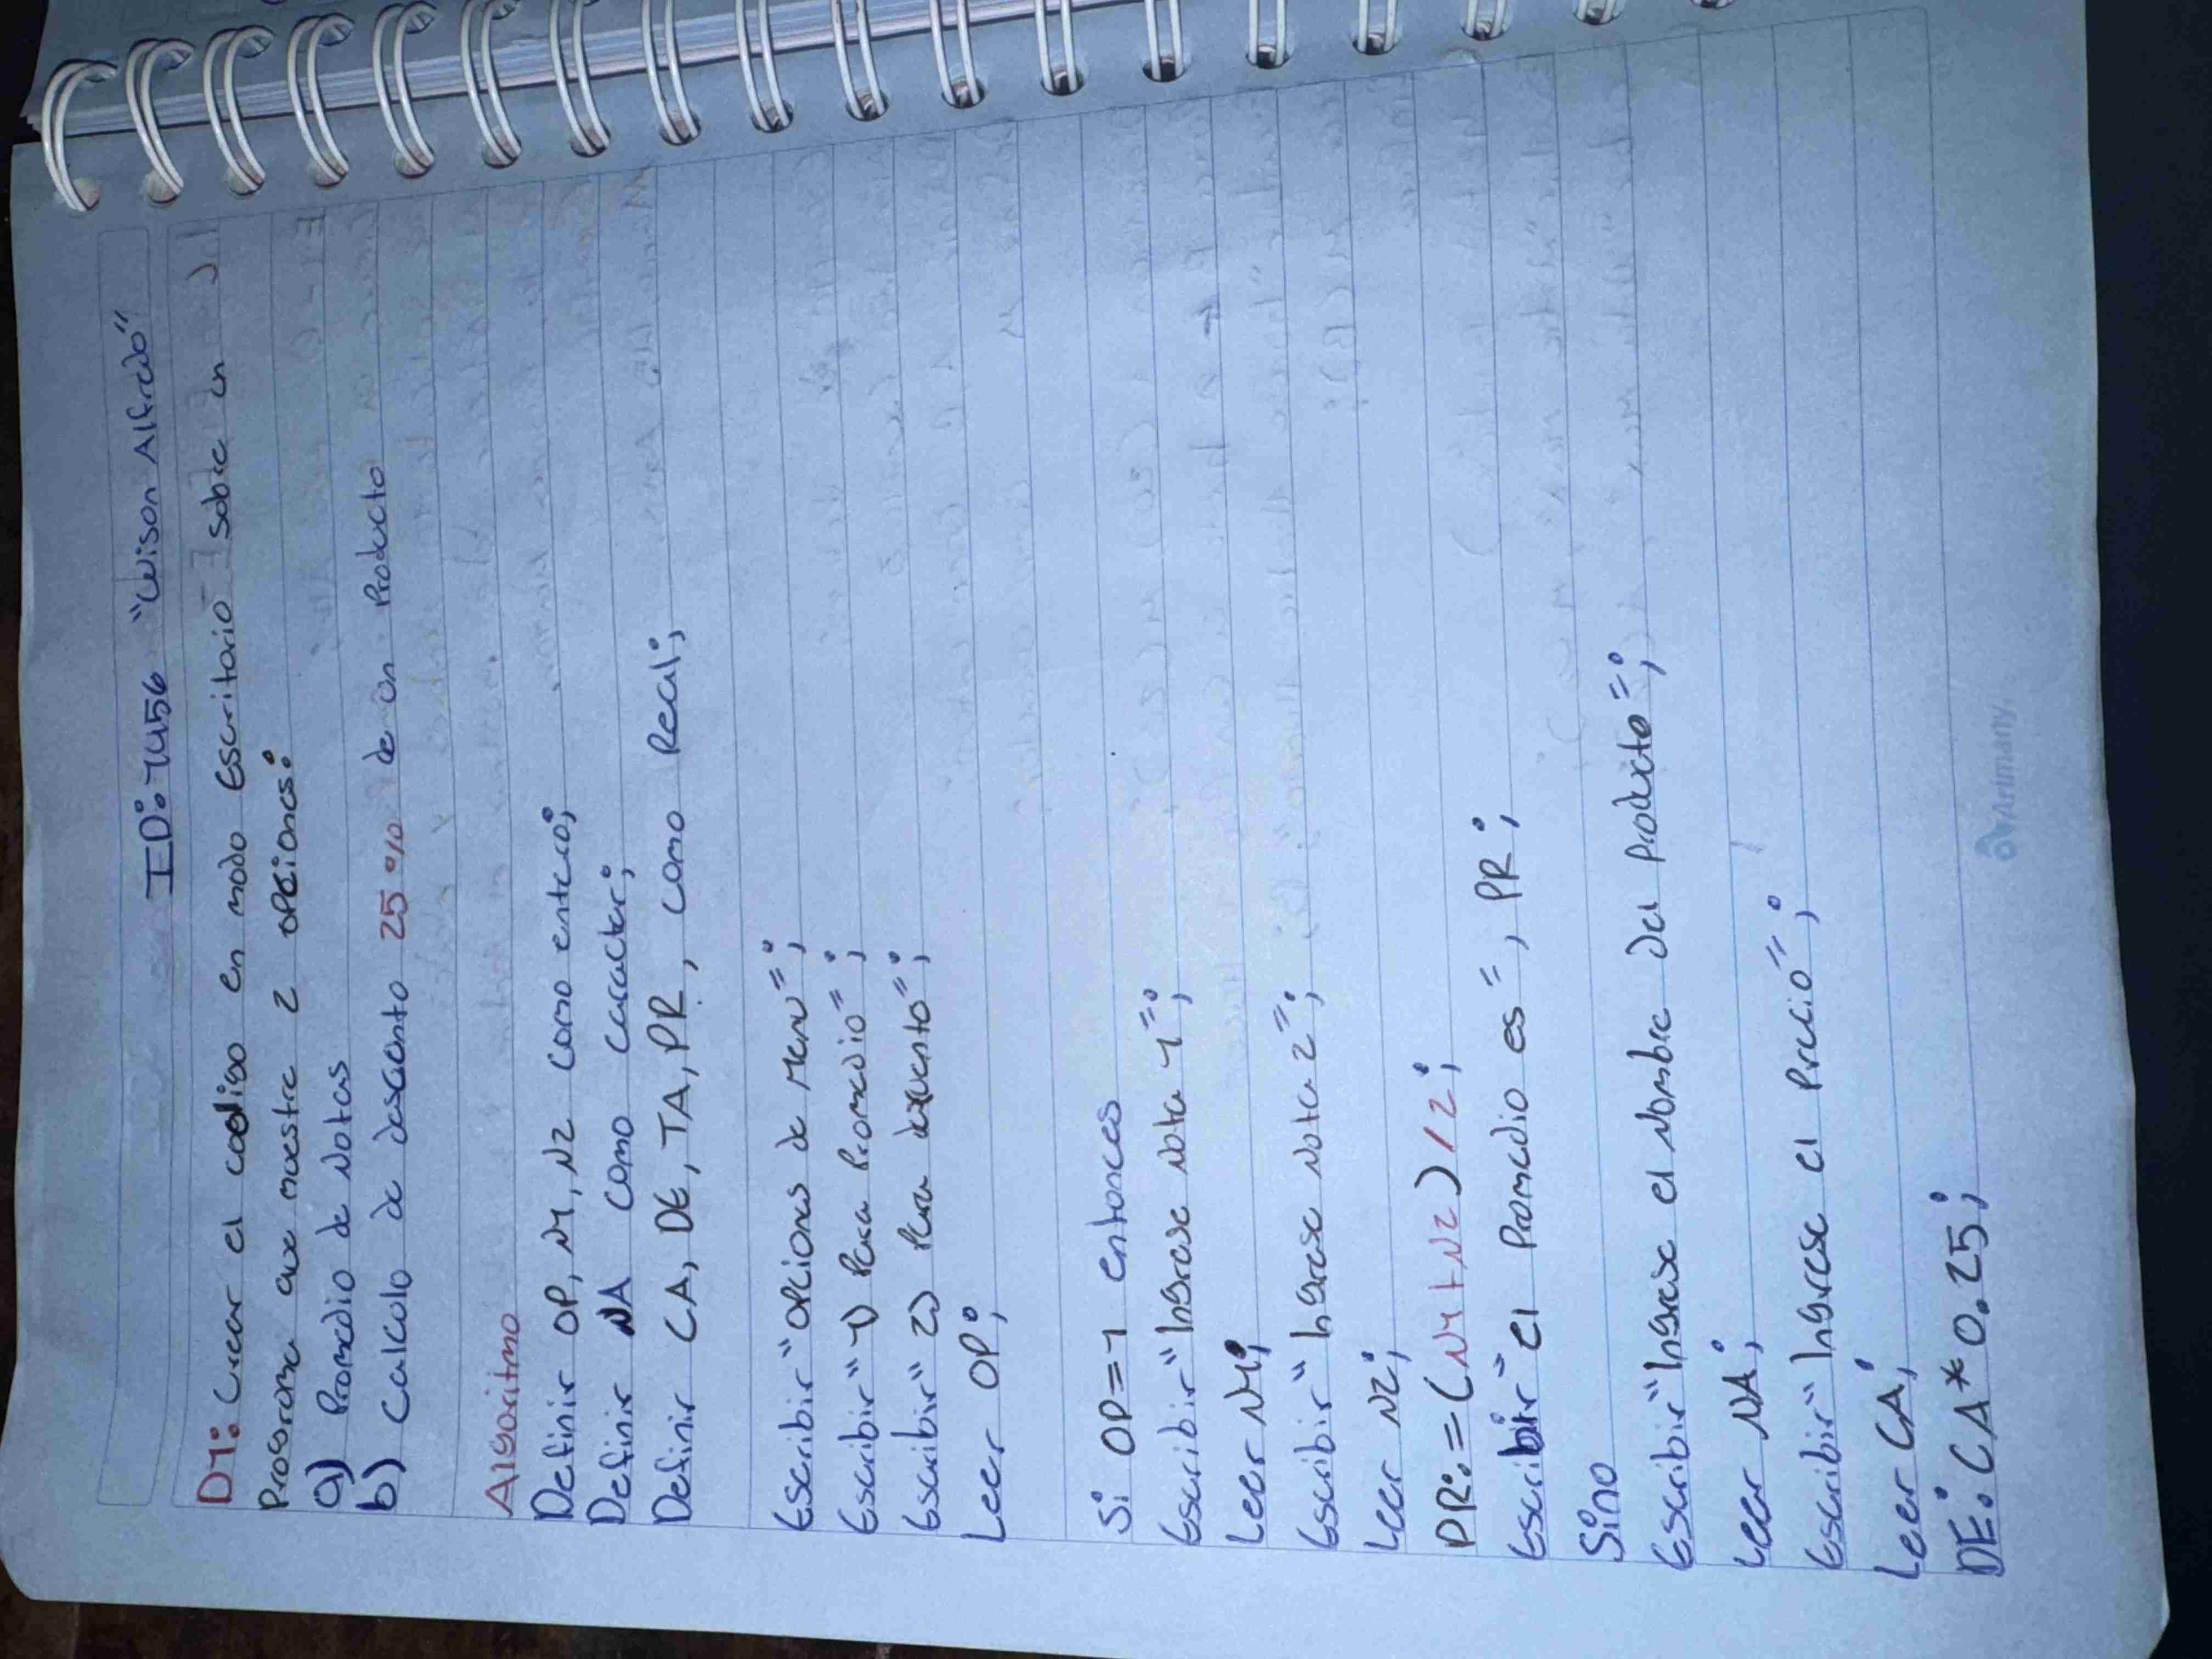 ID: 7456 "Wison Alfredo"
D1: Crear el codigo en modo Escritorio sobre un
Programa que muestre 2 opciones:
a) Promedio de Notas
b) Calculo de descuento 25% de un Producto
Algoritmo
Definir OP, N1, N2 como entero;
Definir NA como caracter;
Definir CA, DE, TA, PR, como Real;
Escribir "opciones de Menu";
Escribir "1) Para Promedio";
Escribir "2) Para descuento";
Leer OP;
Si OP=1 entonces
Escribir "Ingrese Nota 1";
Leer N1;
Escribir "Ingrese Nota 2";
Leer N2;
PR:=(N1+N2)/2;
Escribir "El Promedio es", PR;
Sino
Escribir "Ingrese el Nombre Del Producto";
Leer NA;
Escribir "Ingrese el Precio";
Leer CA;
DE: CA*0.25;
Arimany.